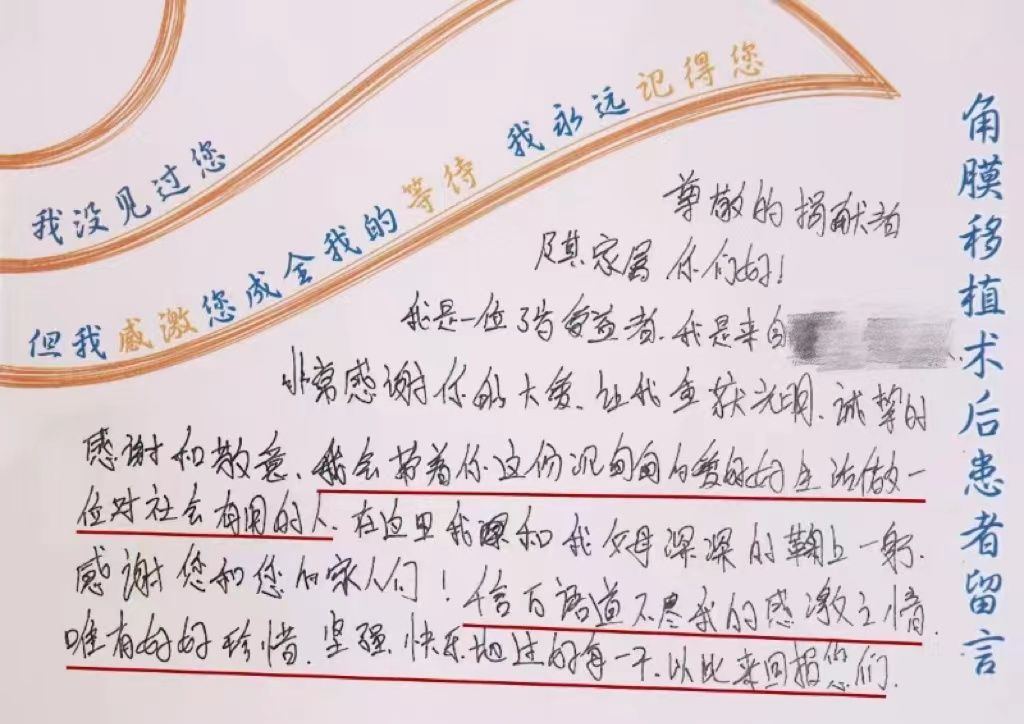 我没见过您
但我感激您成全我的等待 我永远记得您
角膜移植术后患者留言
尊敬的捐献者
及其家属 你们好!
我是一位 受益者、我是来自
非常感谢你的大爱、让我重获光明、诚挚的
感谢和敬意、我会带着你这份沉甸甸的爱好好生活做一
位对社会有用的人、在这里我和我父母深深的鞠上一躬、
感谢您和您的家人们!千言万语道不尽我的感激之情、
唯有好好珍惜、坚强、快乐地过好每一天、以此来回报您们、